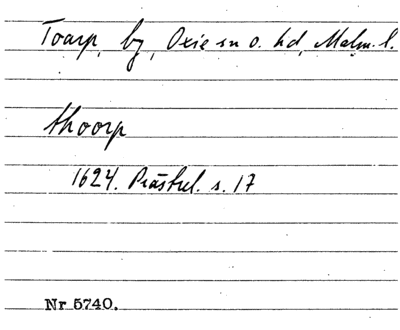 Toarp, by, Oxie sn o. hd, Malm. l.
thoorp
1624. Prästrel. s. 17
Nr 5740.